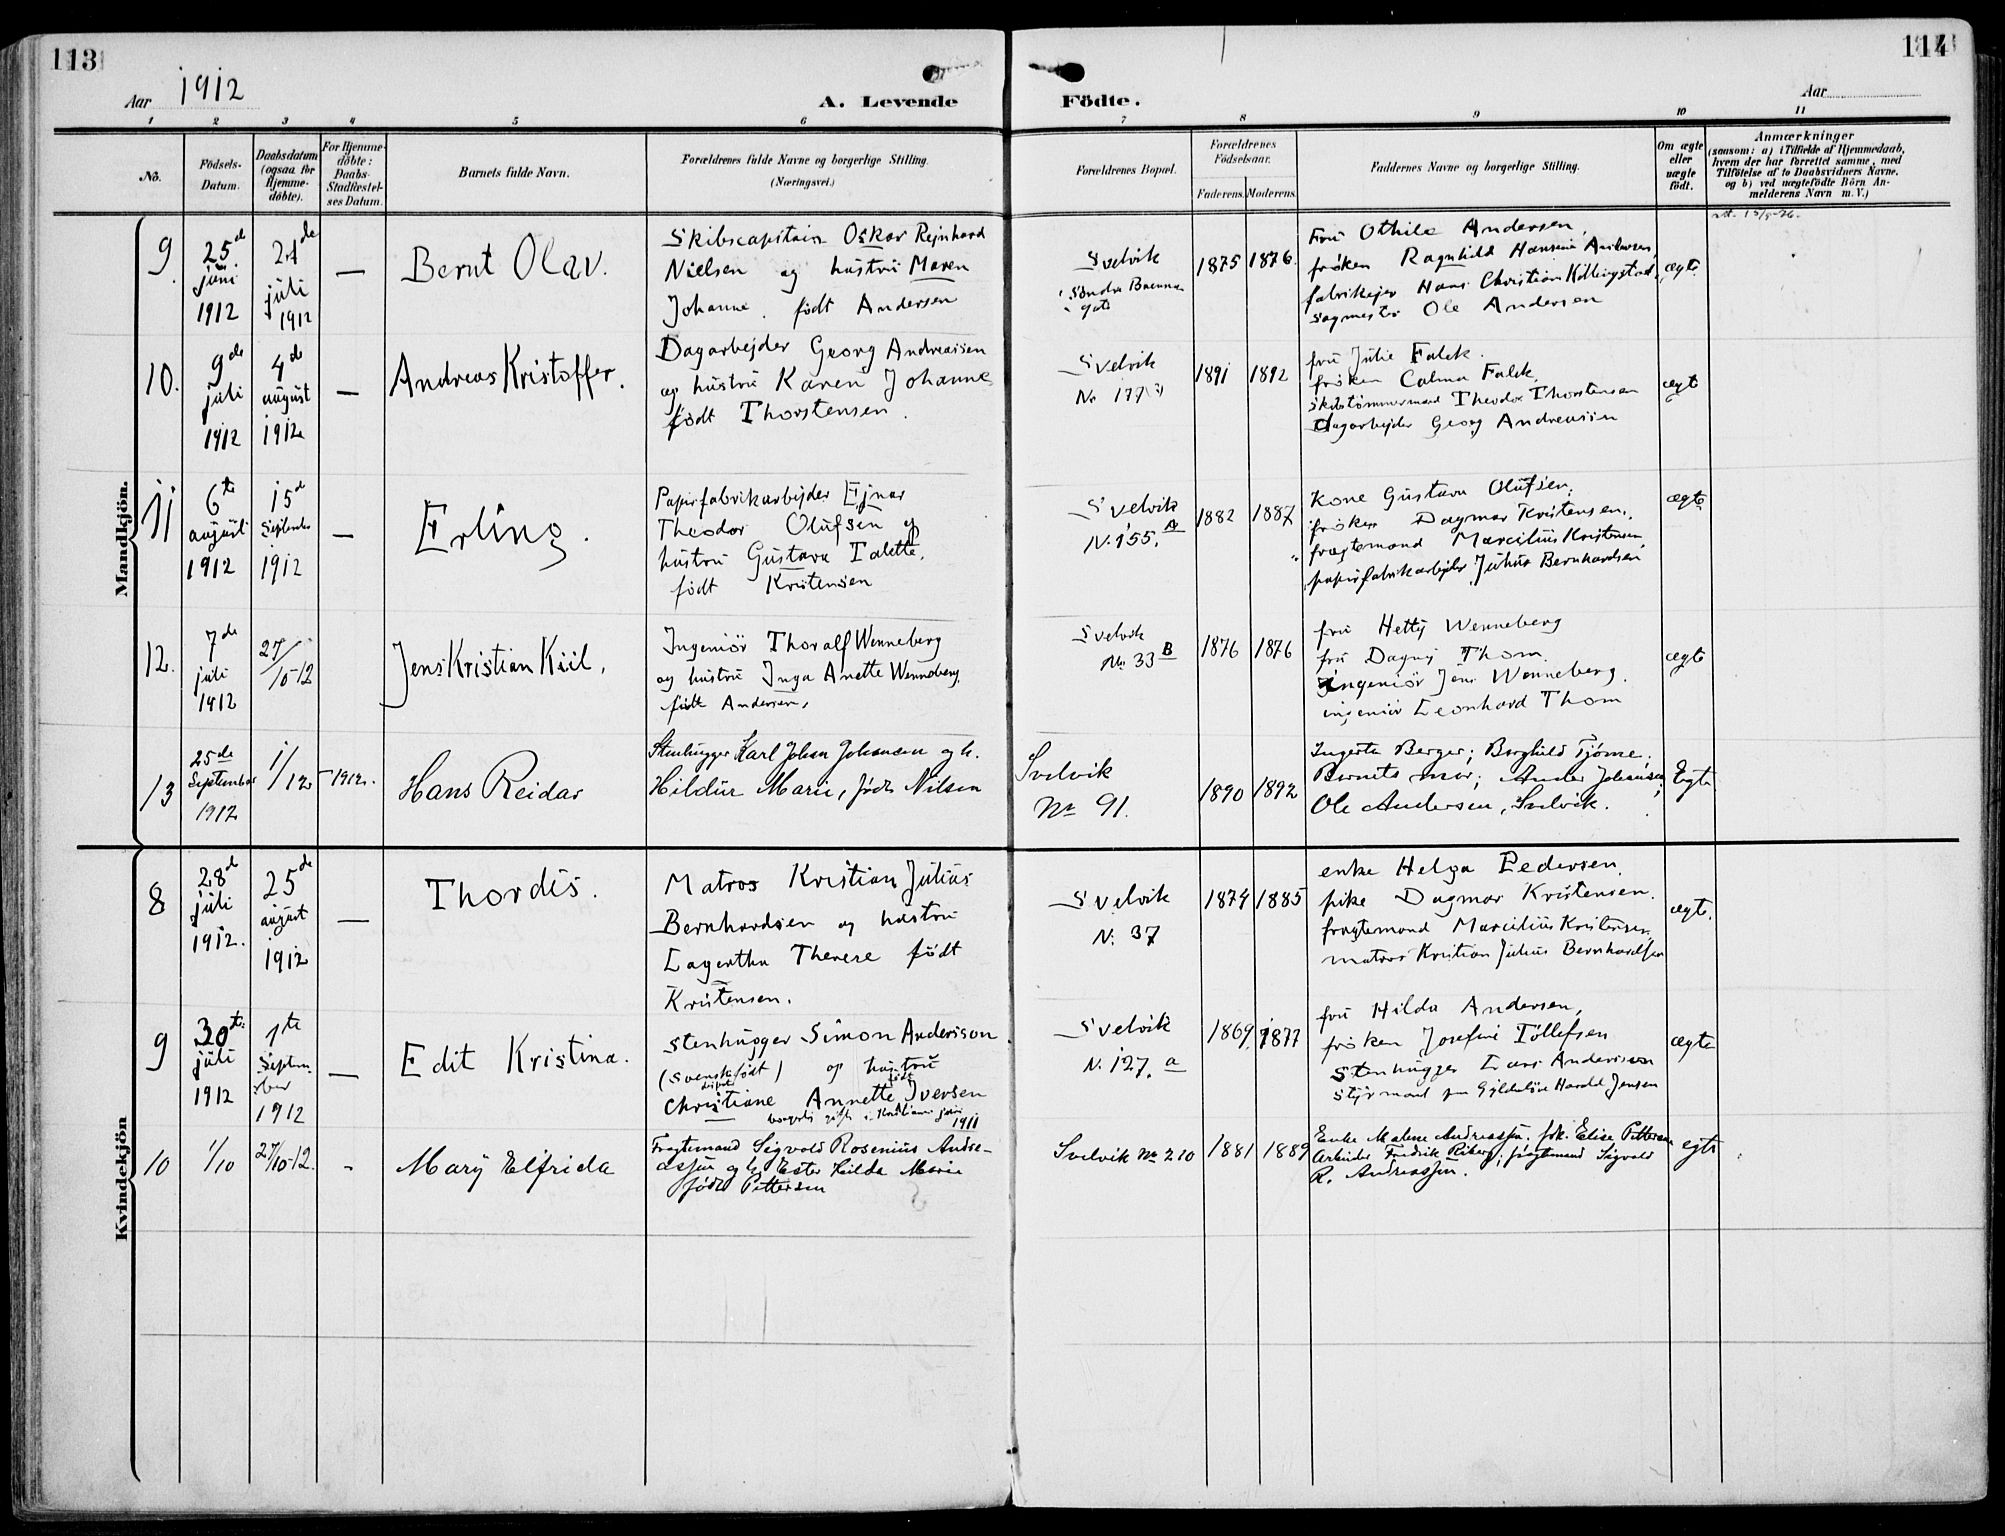 113
114
Aar 1912
A. Levende
Födte.
Aar
1 2 3 4 5 6 7 8 9 10 11
No.
Födsels-
Datum.
Daabsdatum
(ogsaa for
Hjemme-
döbte).
For Hjemme-
döbte:
Daabs-
Stadfæstel-
ses Datum.
Barnets fulde Navn.
Forældrenes fulde Navne og borgerlige Stilling.
(Næringsvei.)
Forældrenes Bopæl.
Forældrenes
Födselsaar.
Faderens. Moderens.
Faddernes Navne og borgerlige Stilling.
Om ægte
eller
uægte
födt.
Anmærkninger
(saasom: a) i Tilfælde af Hjemmedaab,
hvem der har forrettet samme, med
Tilföielse af to Daabsvidners Navne,
og b) ved uægtefödte Börn An-
melderens Navn m. V.)
Mandkjön.
9.
25 d
juni
1912
21 de
juli
1912
—
Bernt Olav.
Skibscaptain Oskar Rejnhard
Nielsen og hustru Maren
Johanne. født Andersen
Svelvik
Søndre
gate
1875
1876.
Fru Othile Andersen,
frøken Ragnhild Hansine Andersen,
fabrikejer Hans Christian Killingstad,
Ole Andersen
ægte
10.
9 de
juli
1912
4 de
august
1912
—
Andreas Kristoffer.
Dagarbejder Georg Andreassen
og hustru Karen Johanne
født Thorstensen.
Svelvik
No 177
1891
1892
fru Julie Falck.
frøken Calma Falck,
skibstømmermand Theodor Thorstensen
Dagarbejder Georg Andreassen
ægte
11
6 te
august
1912
15 d
September
1912
—
Erling.
Papirfabrikarbejder Ejnar
Theodor Olufsen og
hustru Gustava Talette.
født Kristensen
Svelvik
N. 155. A
1882
1887
Kone Gustava Olufsen.
frøken Dagmar Kristensen.
fragtemand Marcilius Kristensen
papirfabrikarbejder Julius Bernhardsen
ægte
12.
7 de
juli
1912
27/10-12
Jens Kristian Kiil.
Ingeniör Thoralf Wenneberg
og hustru Inga Anette Wenneberg.
født Andersen.
Svelvik
No. 33 B
1876
1876
fru Hetty Wenneberg
fru Dagny Thom.
ingeniör Jens Wenneberg.
ingeniör Leonhard Thom
ægte
13
25 de
September
1912
1/12 - 1912.
Hans Reidar
Stenhugger Karl Johan Johansen og h.
Hildur Marie, født Nilsen
Svelvik
No 91.
1890
1892
Ingerta Berger; Borghild Tjøme;
Barnets mor; Anders Johansen;
Ole Andersen, Svelvik.
Egte
Kvindekjön
8
28 d
juli
1912.
25 de
august
1912
—
Thordis.
Matros Kristian Julius
Bernhardsen og hustru
Lagertha Therese født
Kristensen.
Svelvik
N. 37
1874
1885
enke Helga Pedersen.
pike Dagmar Kristensen.
fragtemand Marcilius Kristensen
matros Kristian Julius Bernhardsen
ægte.
9
30 te
juli
1912
1 te
Septem-
ber
1912
—
Edit Kristina.
Stenhugger Simon Andersson
(svenskfødt) og hustru
Christiane Annette Iversen
borgerlig gift i Kristiania juni
1911
Svelvik
N. 127. a
1869
1877
fru Hilda Andersen,
frøken Josefine Tollefsen
Stenhugger Lars Andersson
Styrmand Harald Jensen
ægte
10
1/10
27/10-12.
-
Mary Elfrida
Fragtemand Sigvald Rosenius Andre-
assen og h. Ester Hilda Marie
født Pettersen
Svelvik No 210
1881
1889
Enke Malene Andreassen. frk. Elise Pettersen
Arbeider Fredrik Riberg; fragtemand Sigvald
R. Andreassen.
egte